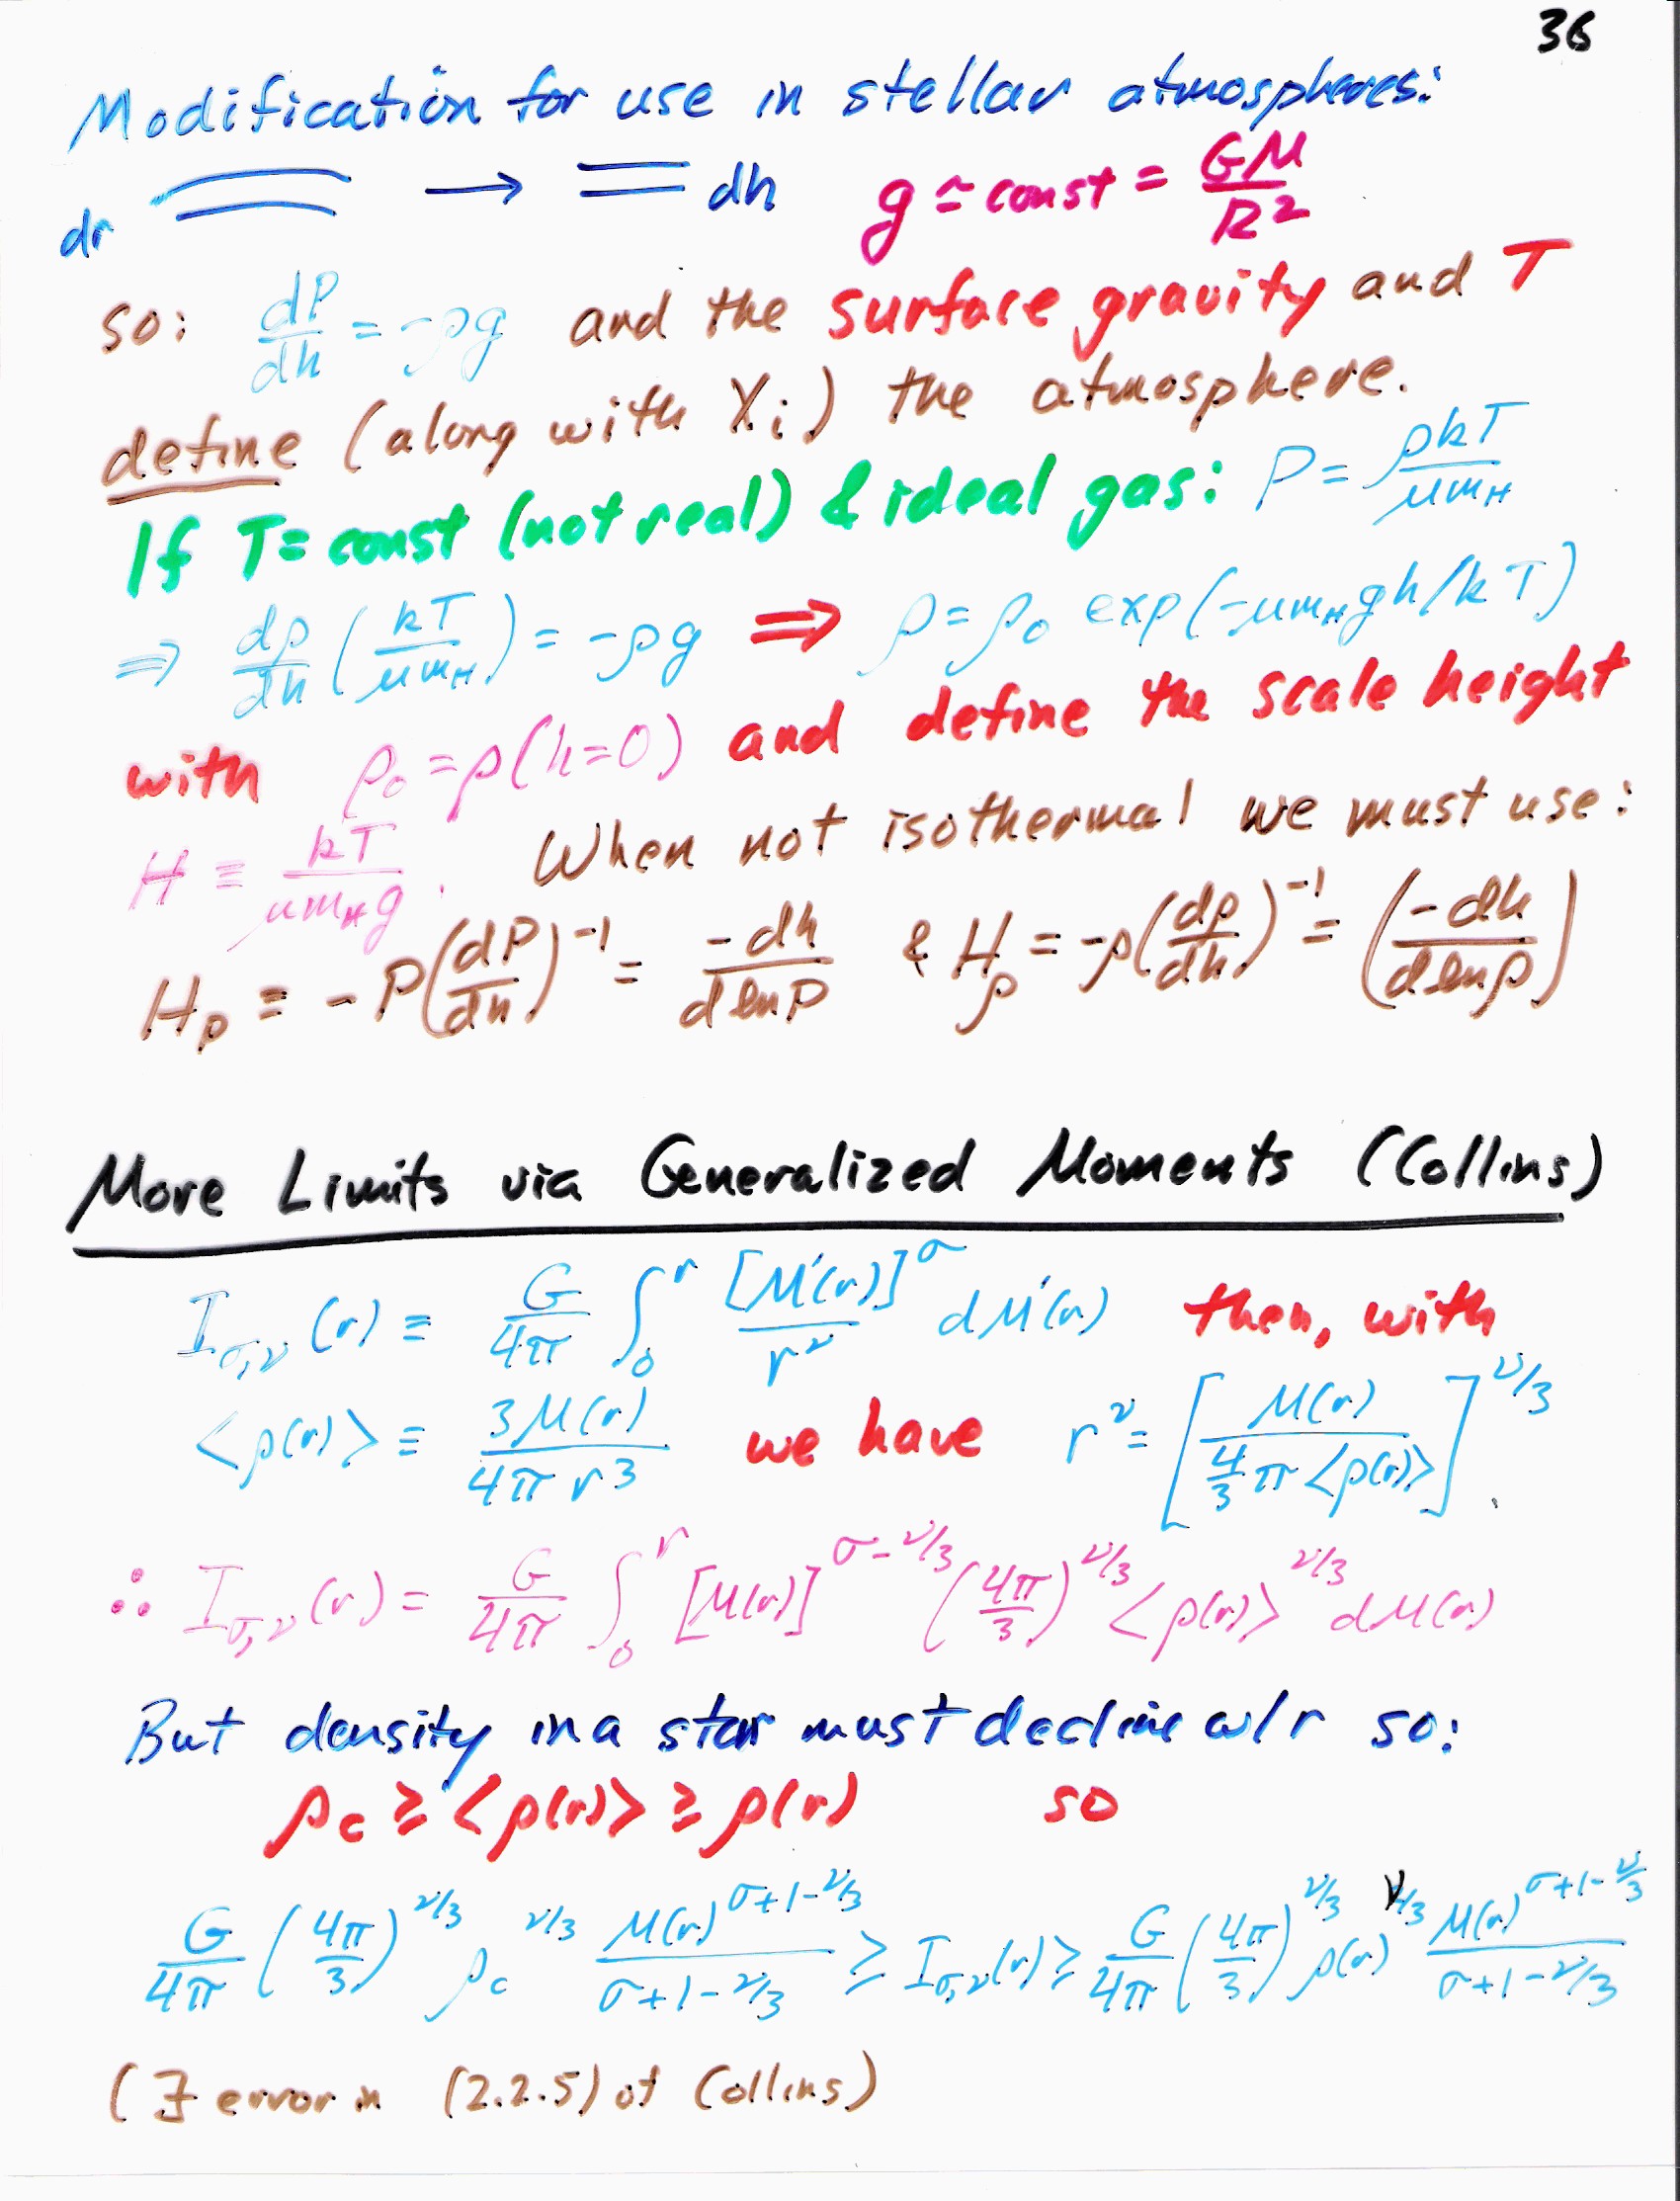 36
Modification for use in stellar atmospheres:
dr → dh g ≃ const = GM/R²
so: dP/dh = -ρg and the surface gravity and T
define (along with Xᵢ) the atmosphere.
If T = const (not real) & ideal gas: P = ρkT/μm_H
⇒ dρ/dh (kT/μm_H) = -ρg ⇒ ρ = ρ₀ exp(-μm_H gh/kT)
with ρ₀ = ρ(h=0) and define the scale height
H ≡ kT/μm_H g. When not isothermal we must use:
H_P = -P(dP/dh)⁻¹ = -dh/d ln P & H_ρ = -ρ(dρ/dh)⁻¹ = (-dh/d ln ρ)
More Limits via Generalized Moments (Collins)
I_σ,ν(r) ≡ G/4π ∫₀^r [M'(r)]^σ/r^ν dM'(r) then, with
<ρ(r)> ≡ 3M(r)/4πr³ we have r^ν = [M(r)/(4/3 π <ρ(r)>)]^ν/3.
∴ I_σ,ν(r) = G/4π ∫₀^r [M(r)]^σ-ν/3 (4π/3)^ν/3 <ρ(r)>^ν/3 dM(r)
But density in a star must decline w/r so:
ρ_c ≥ <ρ(r)> ≥ ρ(r) so
G/4π (4π/3)^ν/3 ρ_c^ν/3 M(r)^σ+1-ν/3/(σ+1-ν/3) ≥ I_σ,ν(r) ≥ G/4π (4π/3)^ν/3 ρ(r)^ν/3 M(r)^σ+1-ν/3/(σ+1-ν/3)
(∃ error in (2.2.5) of Collins)